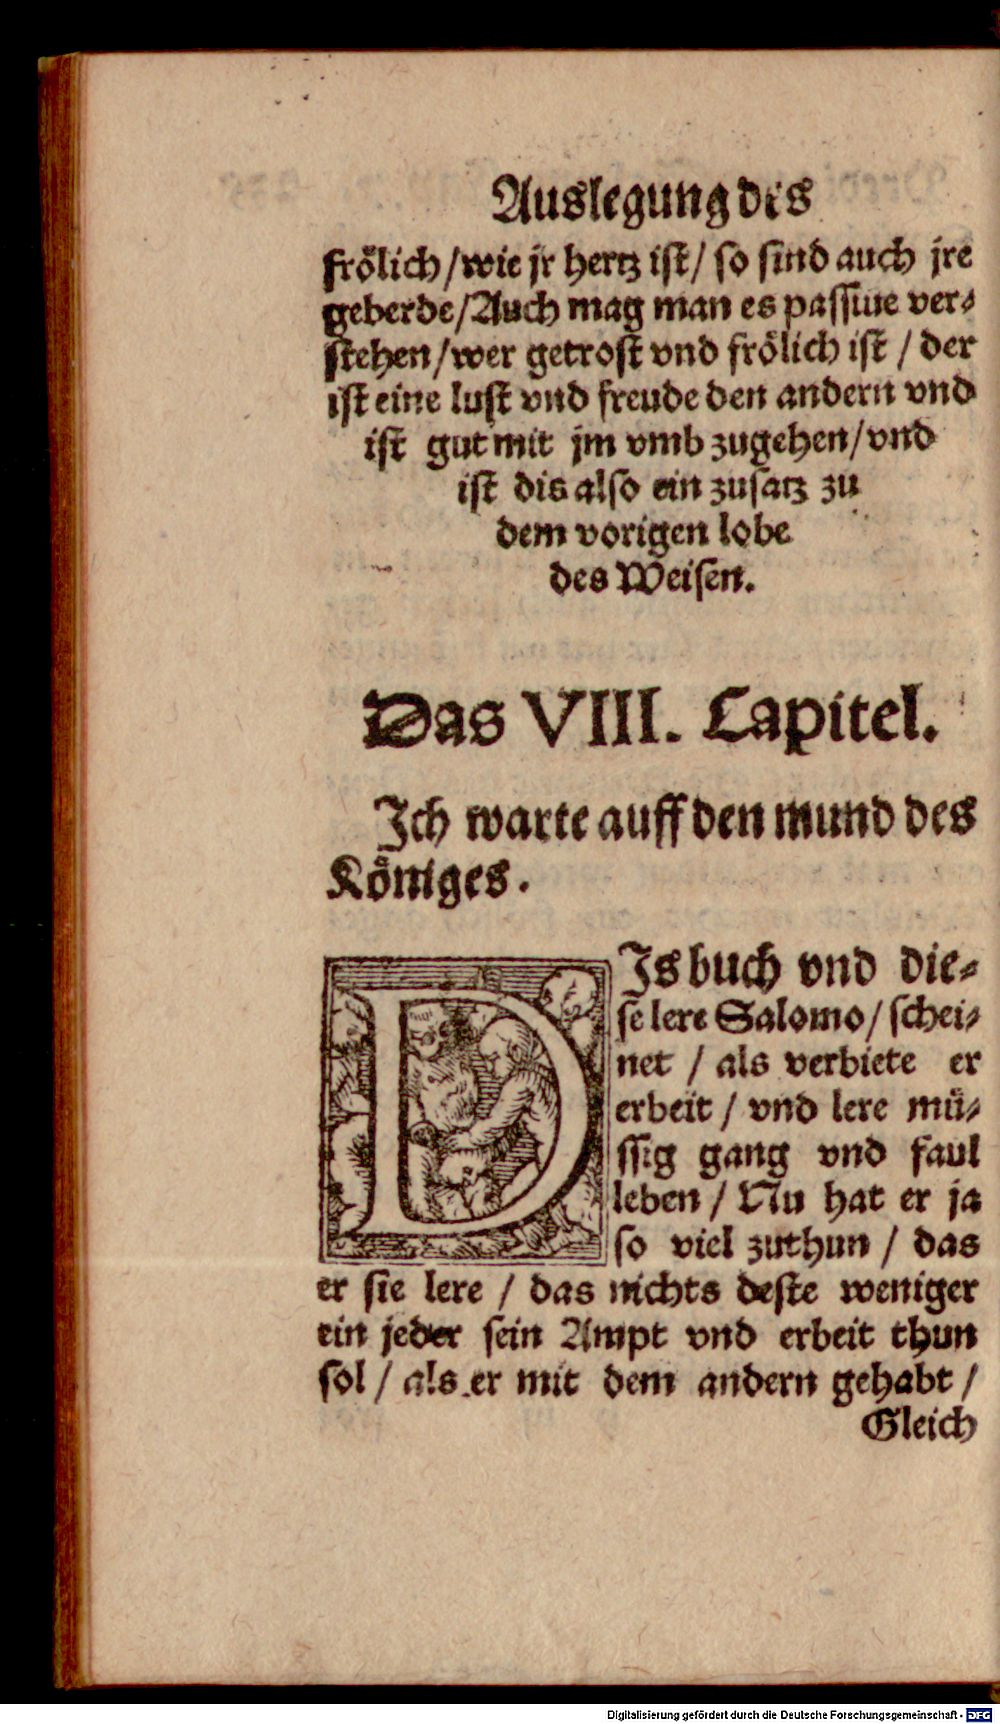 Auslegung des
frölich/wie jr hertz ist/ so sind auch jre
geberde/Auch mag man es passiue ver⸗
stehen/wer getrost vnd frölich ist / der
ist eine lust vnd freude den andern vnd
ist gut mit jm vmb zugehen/vnd
ist dis also ein zusatz zu
dem vorigen lobe
des Weisen.
Das VIII. Capitel.
Ich warte auff den mund des
Königes.
DIs buch vnd die⸗
se lere Salomo/ schei⸗
net / als verbiete er
erbeit / vnd lere mü⸗
ssig gang vnd faul
leben / Nu hat er ja
so viel zuthun / das
er sie lere / das nichts deste weniger
ein jeder sein Ampt vnd erbeit thun
sol / als er mit dem andern gehabt /
Gleich
Digitalisierung gefördert durch die Deutsche Forschungsgemeinschaft - DFG